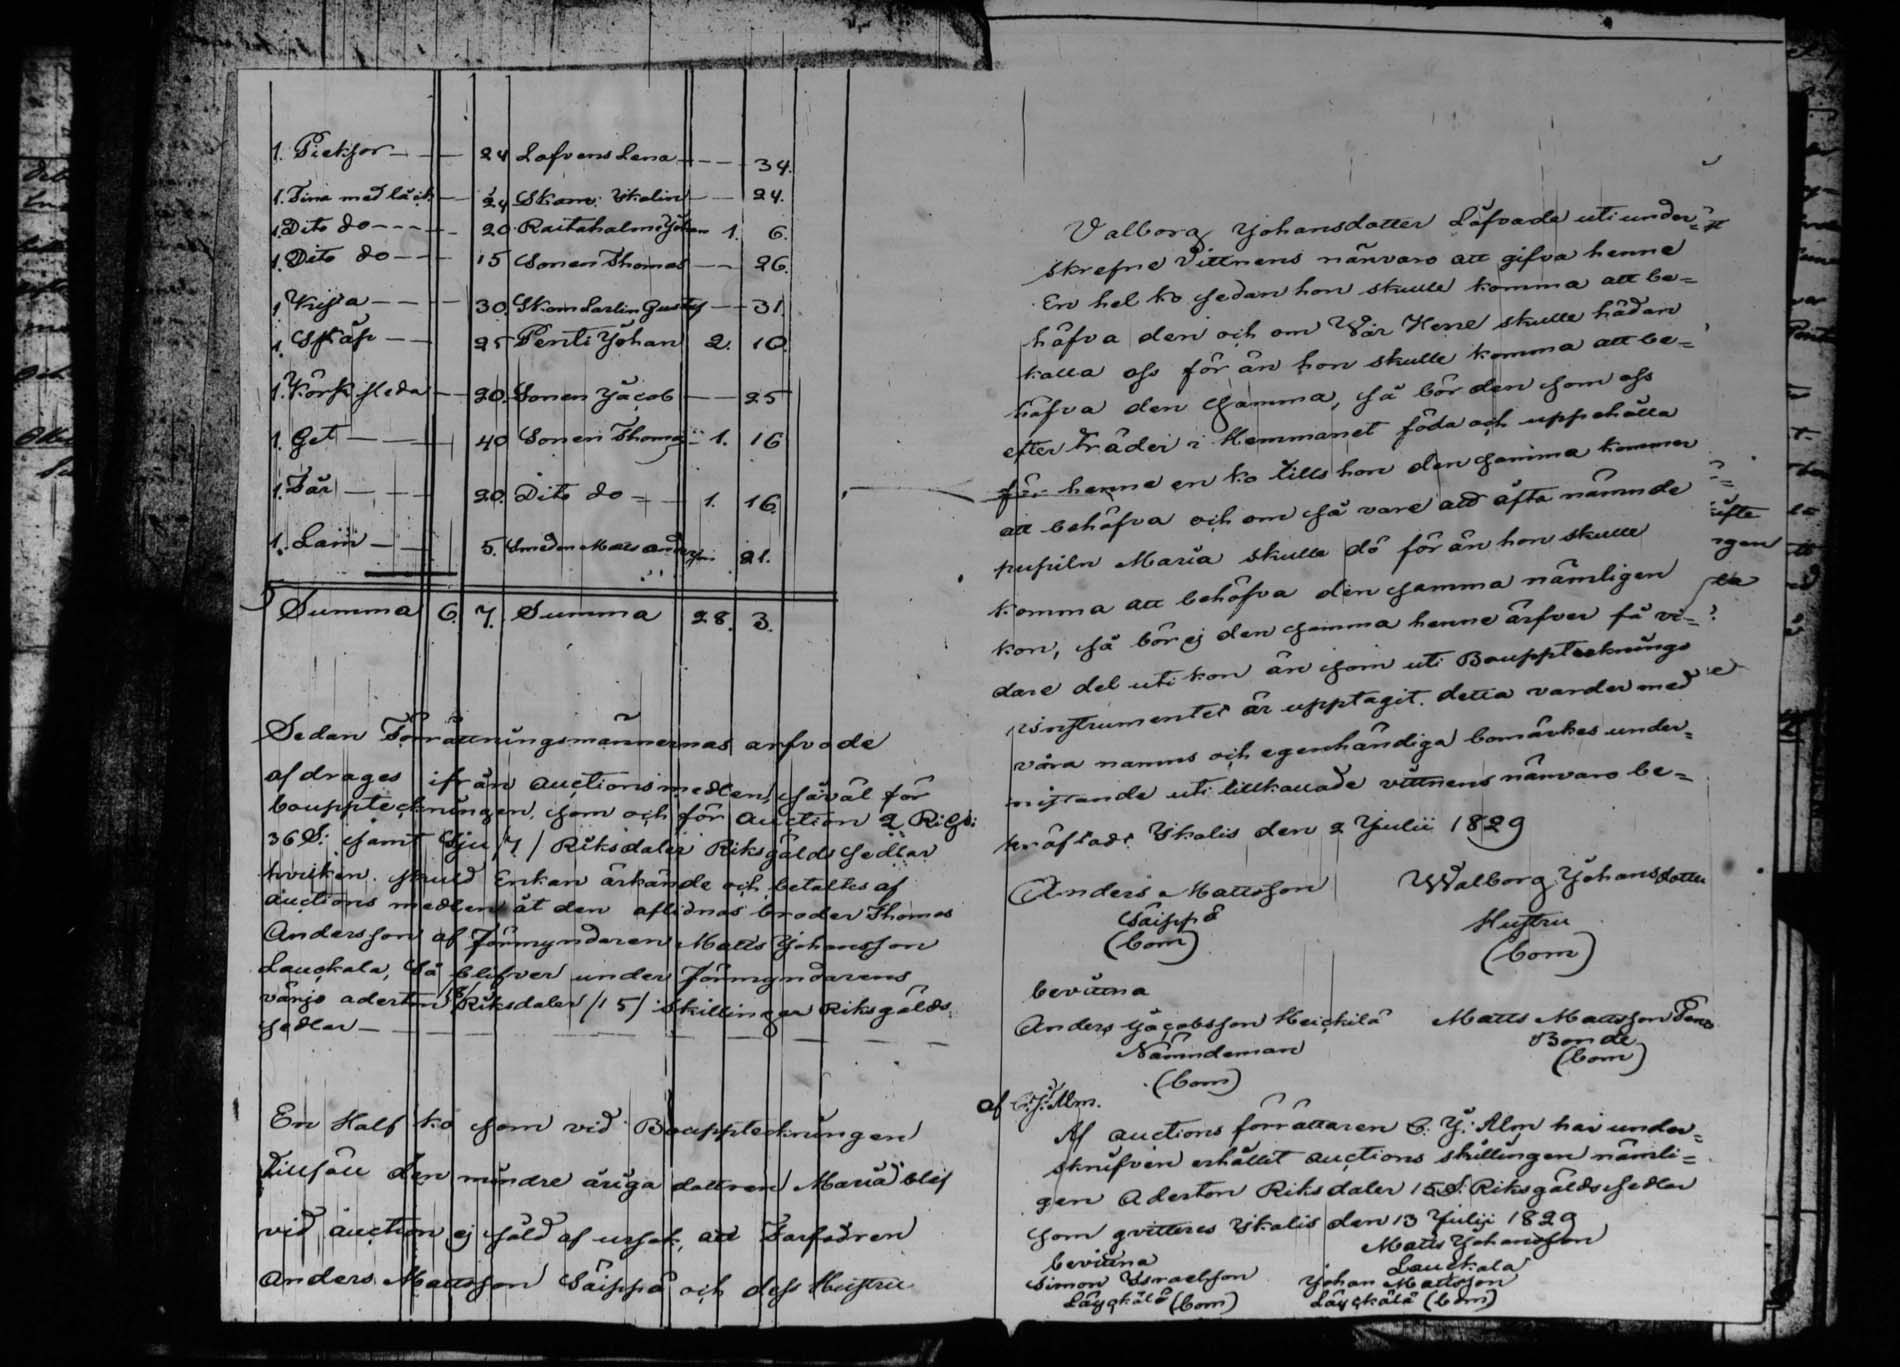 1. Pieksor — — 24 Lafvens Lena — — 34.
1. Tina med låck — 24 Skom: Ykalin — — 24.
1. Dito do — — — 20 Raitahalme Johan 1. 6.
1. Dito do — — 15 Sonen Thomas — — 26.
1. Kista — — — 30. Skom Larlin Gustaf — 31.
1. Skåp — — 25 Penti Johan 2. 10.
1. Körk släda — 20. Sonen Jacob — — 25
1. Get — — — 40 Sonen Thomas 1. 16
1. Får — — — 20. Dito do — 1. 16.
1. Lam — — 5. Smeden Mats 21.
Summa 6. 7. Summa 28. 3.
Sedan Förrättningsmännernas arfvode
afdrages ifrån auctionsmedlen, såväl för
bouppteckningen, som och för auction 2 R:Gs:
36 S: samt Sju /7/ Riksdaler Riksgälds sedlar
hvilken skuld Enkan ärkände och betaltes af
auctions medlen åt den aflidnas broder Thomas
Andersson af Förmynderen Matts Johansson
Lauckala, Så blifver under Förmyndarens
vårjo aderton /18/ Riksdaler /15/ Skillingar Riksgälds
sedlar — — —
En Half ko som vid Bouppteckningen
Tillföll den mindre åriga dottren Maria blef
vid auction ej såld af ursak, att Farfadren
Anders Mattsson Säippä och dess Hustru
Valborg Johansdotter Låfvade uti under=
skrefne Vittnens närvaro att gifva henne
En hel ko sedan hon skulle komma att be=
höfva den och om Wår Herre skulle hådan
kalla oss för än hon skulle komma att be=
höfva den samma, så bör den som oss
efter träder i Hemmanet föda och uppehålla
för henne en ko tills hon den samma kommer
att behöfva och om så vare att åfta nämnde
pupiln Maria skulle dö för än hon skulle
komma att behöfva den samma nämligen
kon, så bör ej den samma henne ärfver få vi=
dare del uti kon än som uti Bouppteknings
instrumentet är upptagit. detta varder med
våra namns och egenhändiga bomärkes under=
nittande uti tillkallade vittnens närvaro be=
kräftadt Ykalis den 2 Julii 1829
Anders Mattsson Walborg Johansdotter
Säippä Hustru
(bom) (bom)
bevittna
Anders Jacobsson Heickilä Matts Mattsson
Nämndeman Bonde
(bom) (bom)
af C. J. Alm.
Af auctions förrättaren C. J. Alm har under=
skrifven erhållit auctions skillingen nämli=
gen Aderton Riksdaler 15 S: Riksgälds sedlar
som qvitteres Ykalis den 13 Julii 1829
Matts Johansson
bevittna Lauckala
Simon Israelsson Johan Mattsson
Läyckälä (bom) Läyckälä (bom)